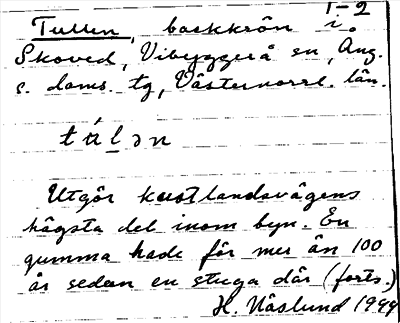 1-2
Tullen, backkrön i
Skoved, Vibyggerå sn, Ång.
s. doms. tg, Västernorrl. län.
túlən
Utgör kustlandsvägens
högsta del inom byn. En
gumma hade för mer än 100
år sedan en stuga där (forts.)
H. Näslund 1944